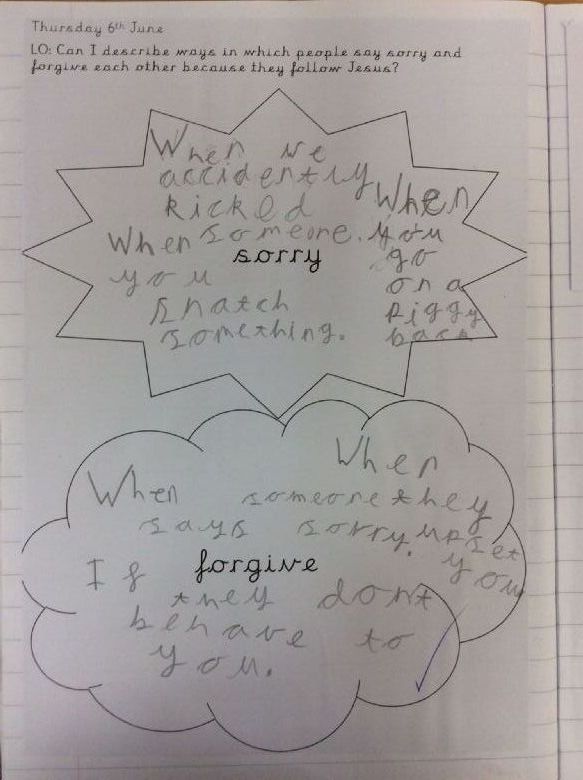 Thursday 6th June
LO: Can I describe ways in which people say sorry and
forgive each other because they follow Jesus?
When we
accidently
kicked
someone.
When
you
snatch
something.
When
you
go
on a
piggy
back
sorry
When someone
says sorry.
When
they
upset
you
forgive
If they dont
behave to
you.